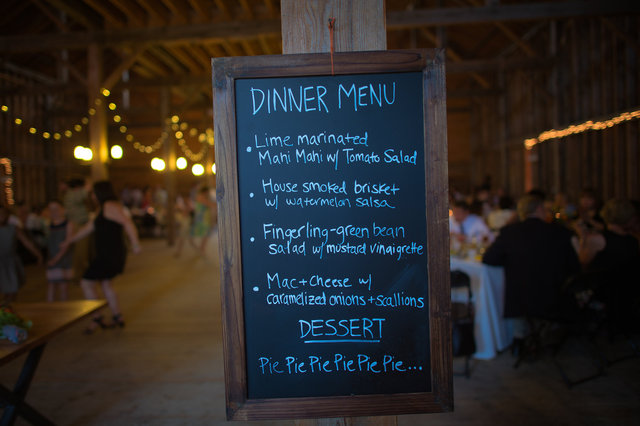 DINNER MENU
• Lime marinated
Mahi Mahi w/ Tomato Salad
• House smoked brisket
w/ watermelon salsa
• Fingerling-green bean
salad w/ mustard vinaigrette
• Mac + Cheese w/
caramelized onions + scallions
DESSERT
Pie Pie Pie Pie Pie Pie...